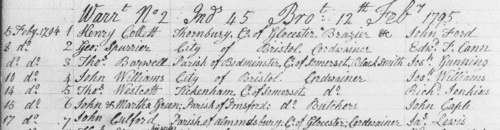 Warrt. No 2 Ind 45 Brot. 12th Feby 1795
5 Feby. 1794 1 Henry Collett Thornbury, Co. of Glocester Brazier &c John Ford
8 do. 2 Geo: Spurrier City of Bristol Cordwainer Edwd. T. Cann
do do. 3 Thos. Bagwell Parish of Bedminster, C. of Somerset, Black Smith Jos: Gunning
10 do. 4 John Williams City of Bristol Cordwainer Jos: Williams
14 do 5 Thos. Westcott Tickenham, C. of Somerset do. Richd. Jenkins
15 do 6 John & Martha Green; Parish of Butchers John Caple
17 do. 7 John Parish of Almondsbury, C. of Glocester: Cordwainer Jas: Lewis